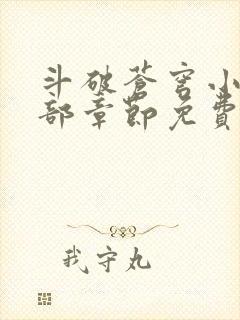 斗破苍穹小
部章节免费
我守丸